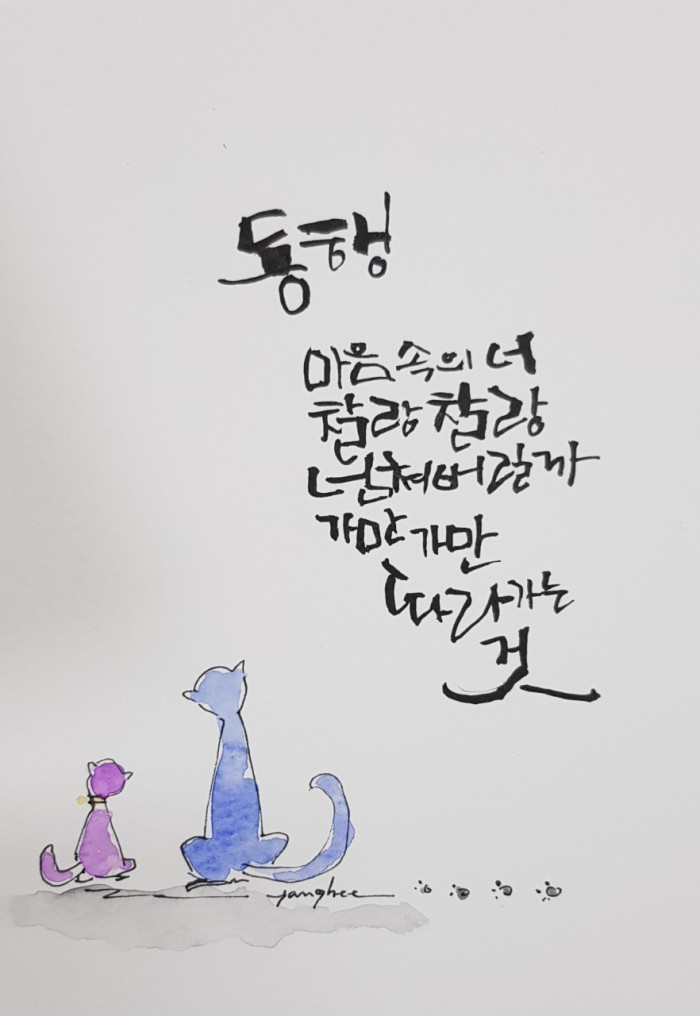 동행
마음 속의 너
찰랑 찰랑
넘쳐버릴까
가만 가만
따라가는
것
yanghee